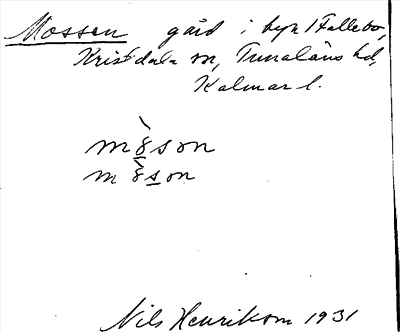 Mossen gård i byn Fallebo,
Kristdala sn, Tunaläns hd,
Kalmar l.
m
m
Nils Henrikson 1931